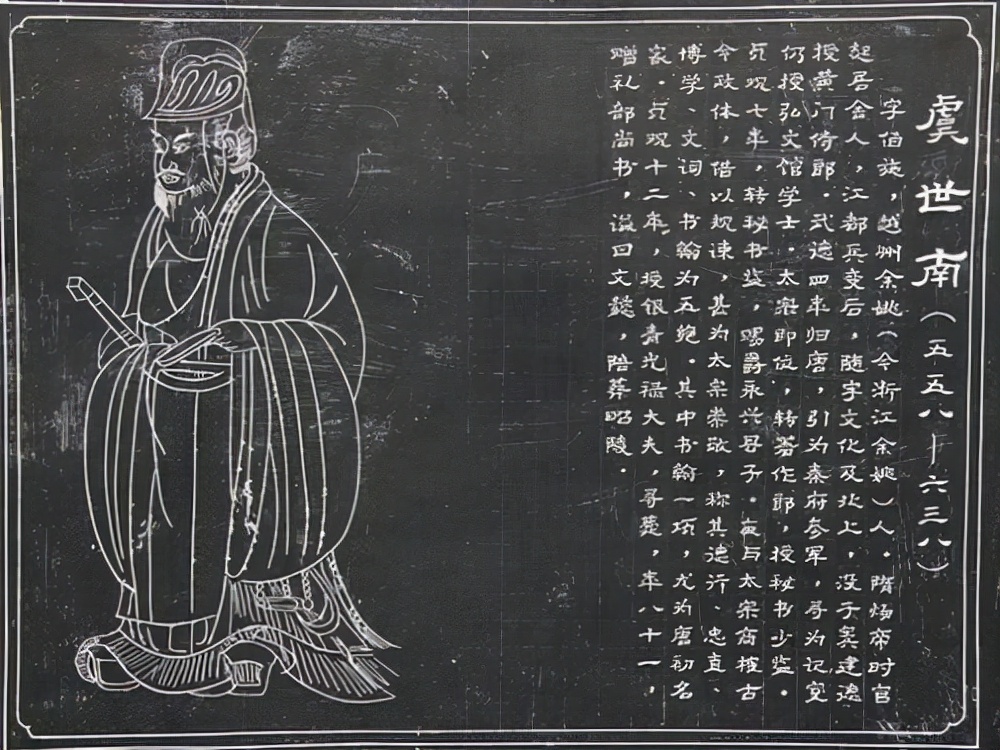 虞世南（五五八—六三八）
字伯施，越州余姚（今浙江余姚）人。隋炀帝时官
起居舍人，江都兵变后，随宇文化及北上，没于窦建德
授黄门侍郎。武德四年归唐，引为秦府参军，寻为记室
仍授弘文馆学士。太宗即位，转著作郎，授秘书少监。
贞观七年，转秘书监，赐爵永兴县子。每与太宗商榷古
今政体，借以规谏，甚为太宗崇敬，称其德行、忠直、
博学、文词、书翰为五绝。其中书翰一项，尤为唐初名
家。贞观十二年，授银青光禄大夫，寻薨，年八十一，
赠礼部尚书，谥曰文懿，陪葬昭陵。